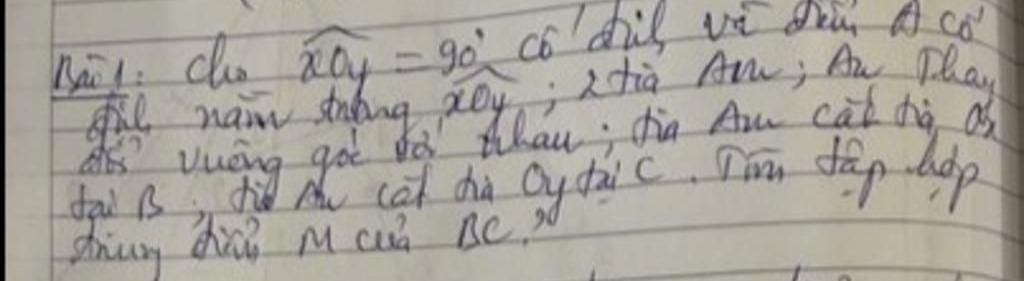 Bài 1: Cho xOy = 90° cố định và điểm A cố
định nằm trong xOy; 2 tia Am; An Thay
đổi vuông góc với nhau; tia Am cắt tia Ox
tại B; tia An cắt tia Oy tại C. Tìm tập hợp
trung điểm M của BC.?